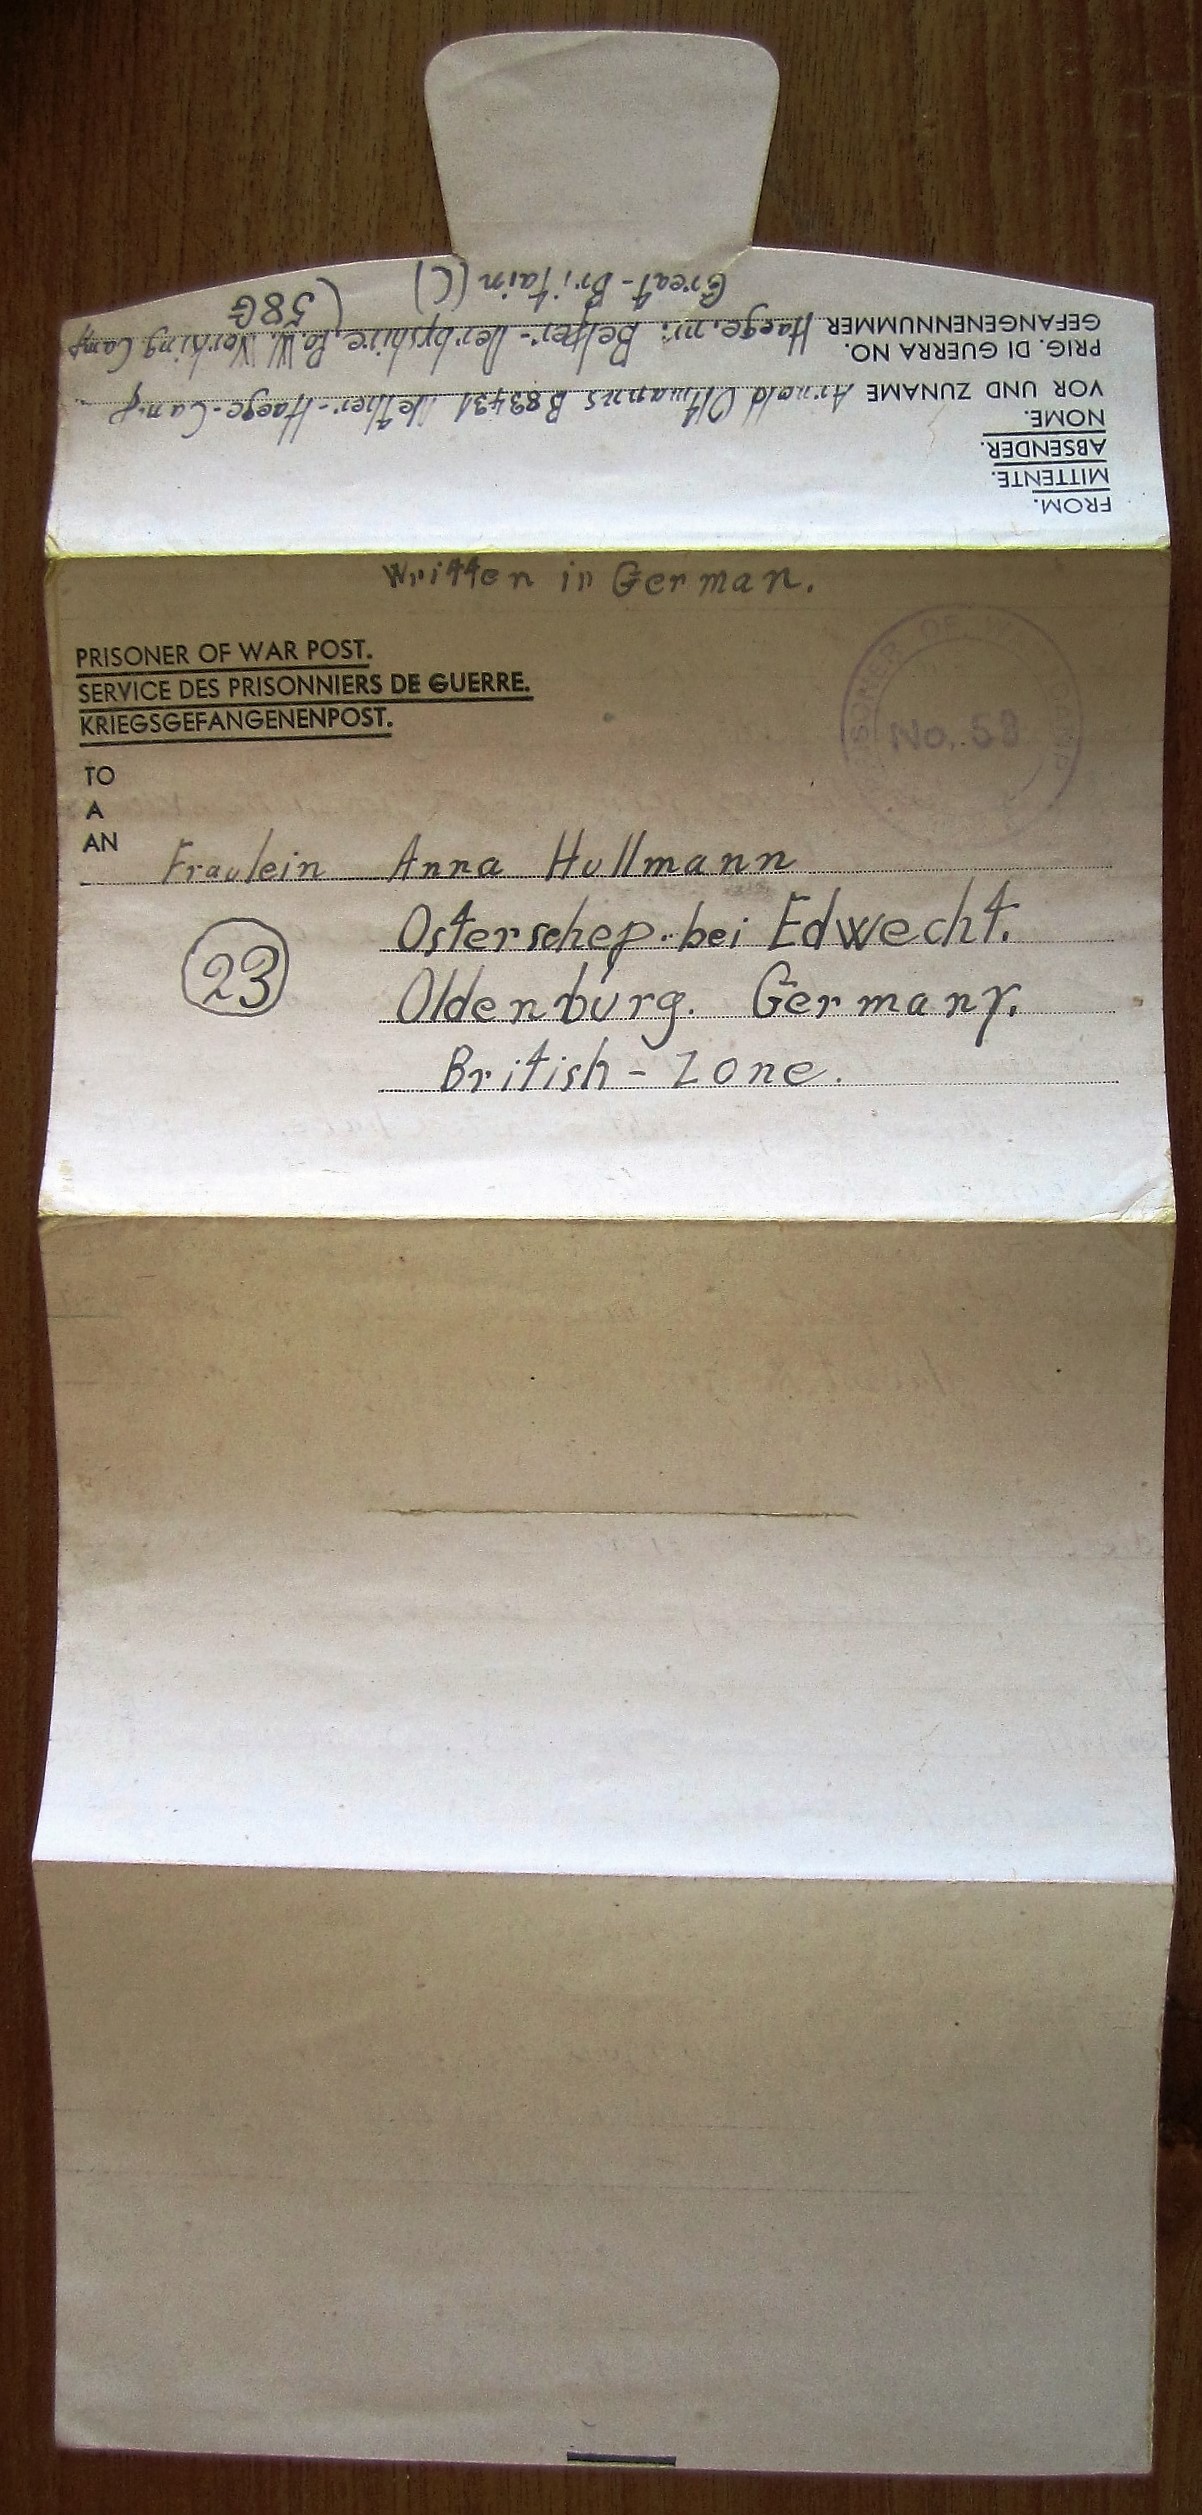 FROM.
MITTENTE.
ABSENDER.
NOME.
VOR UND ZUNAME Arnold Oltmanns B 834731 Nether-Haege-Camp
PRIG. DI GUERRA NO.
GEFANGENENNUMMER Haege, nr: Belper-Derbyshire, P.o.W. Working Camp
(58G
Great-Britain (C)
Written in German.
PRISONER OF WAR POST.
SERVICE DES PRISONNIERS DE GUERRE.
KRIEGSGEFANGENENPOST.
PRISONER OF CAMP
No. 58
TO
A
AN
Fraulein Anna Hullmann
23
Osterschep bei Edwecht.
Oldenburg. Germany.
British-Zone.